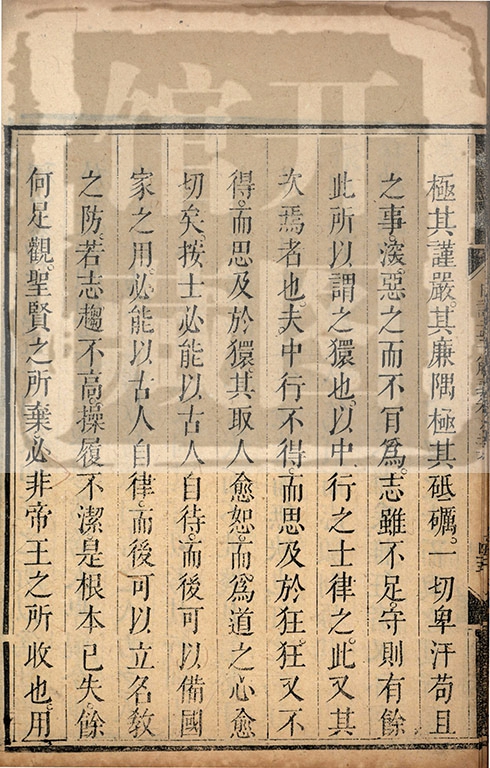 極其謹嚴。其廉隅極其砥礪。一切卑汙苟且
之事。深惡之而不肯爲。志雖不足。守則有餘
此所以謂之獧也。以中行之士律之。此又其
次焉者也。夫中行不得。而思及於狂。狂又不
得。而思及於獧。其取人愈恕。而爲道之心愈
切矣。按士必能以古人自待。而後可以備國
家之用。必能以古人自律。而後可以立名教
之防。若志趨不高。操履不潔。是根本已失。餘
何足觀。聖賢之所棄。必非帝王之所收也。用